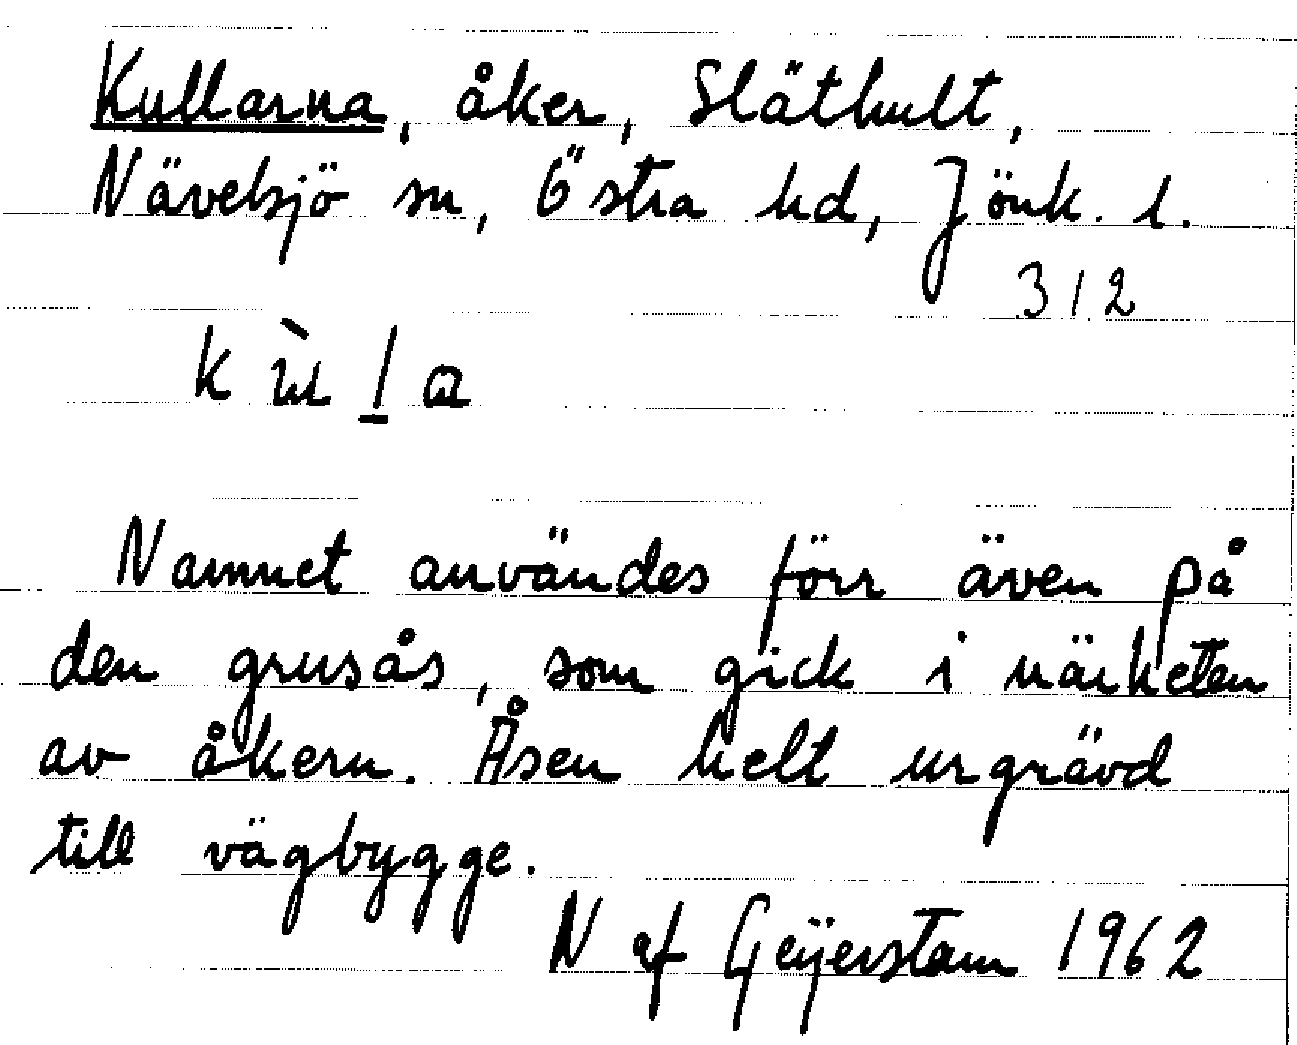 Kullarna, åker, Släthult,
Nävelsjö sn, Östra hd, Jönk. l.
312
Namnet användes förr även på
den grusås, som gick i närheten
av åkern. Åsen helt urgrävd
till vägbygge.
N af Geijerstam 1962